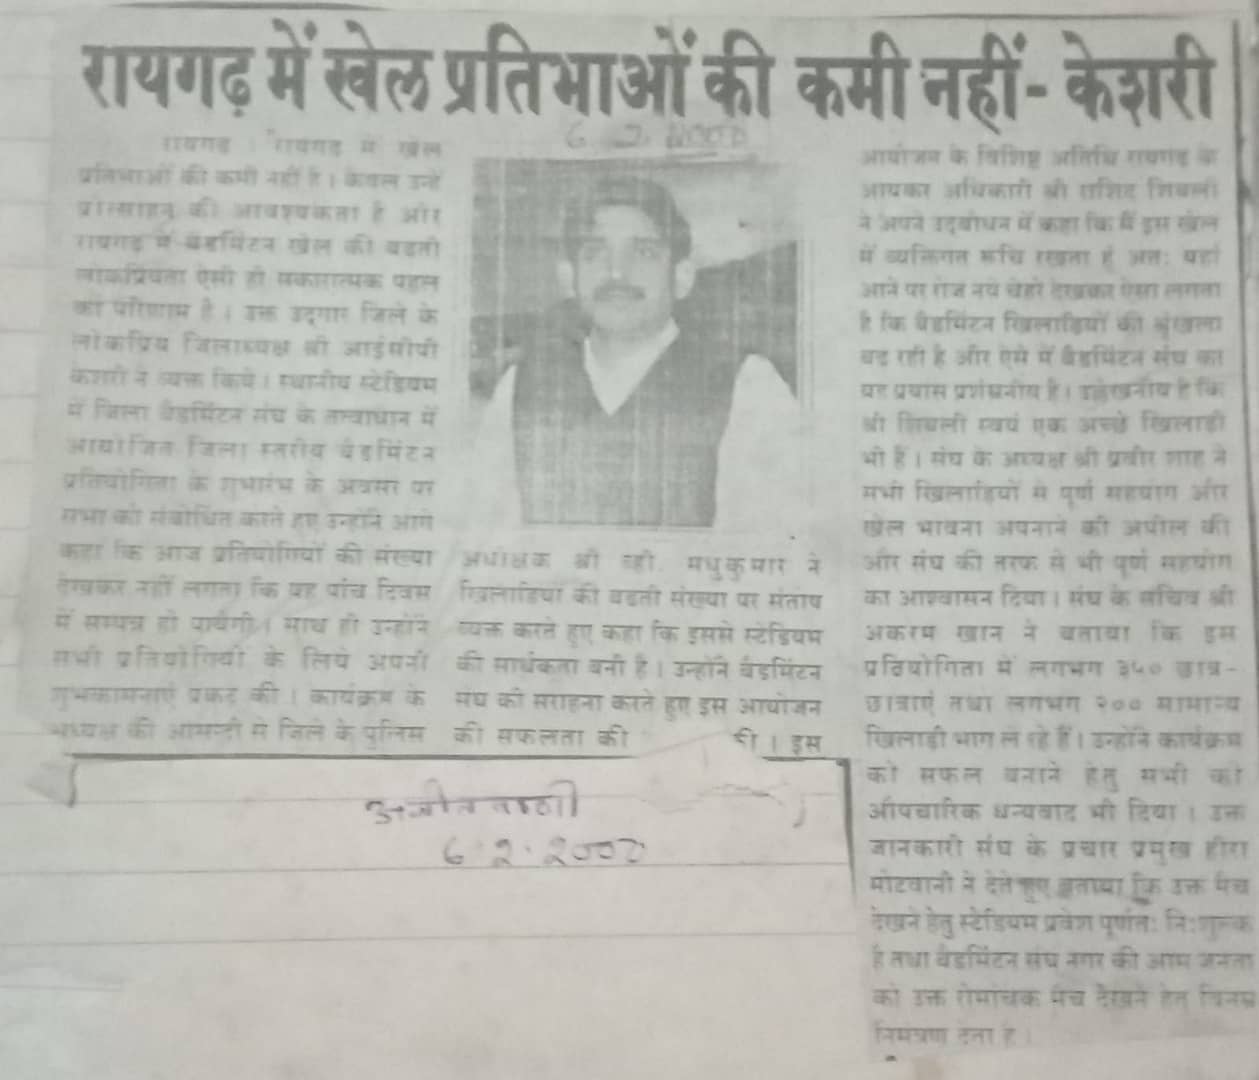 रायगढ़ में खेल प्रतिभाओं की कमी नहीं- केशरी
6.2.2000
रायगढ़ । "रायगढ़ में खेल
प्रतिभाओं की कमी नहीं है । केवल उन्हें
प्रोत्साहन की आवश्यकता है और
रायगढ़ में बैडमिंटन खेल की बढ़ती
लोकप्रियता ऐसी ही सकारात्मक पहल
का परिणाम है । उक्त उद्गार जिले के
लोकप्रिय जिलाध्यक्ष श्री आईसीपी
केशरी ने व्यक्त किये । स्थानीय स्टेडियम
में जिला बैडमिंटन संघ के तत्वाधान में
आयोजित जिला स्तरीय बैडमिंटन
प्रतियोगिता के शुभारंभ के अवसर पर
सभा को संबोधित करते हुए उन्होंने आगे
कहा कि आज प्रतियोगियों की संख्या
देखकर नहीं लगता कि यह पांच दिवस
में सम्पन्न हो पायेगी । साथ ही उन्होंने
सभी प्रतियोगियों के लिये अपनी
शुभकामनाएं प्रकट की । कार्यक्रम के
अध्यक्ष की आसन्दी से जिले के पुलिस
अधीक्षक श्री व्ही. मधुकुमार ने
खिलाड़ियों की बढ़ती संख्या पर संतोष
व्यक्त करते हुए कहा कि इससे स्टेडियम
की सार्थकता बनी है । उन्होंने बैडमिंटन
संघ की सराहना करते हुए इस आयोजन
की सफलता की की । इस
आयोजन के विशिष्ट अतिथि रायगढ़ के
आयकर अधिकारी श्री राशिद सिबली
ने अपने उद्बोधन में कहा कि मैं इस खेल
में व्यक्तिगत रूचि रखता हूं अतः यहां
आने पर रोज नये चेहरे देखकर ऐसा लगता
है कि बैडमिंटन खिलाड़ियों की श्रृंखला
बढ़ रही है और ऐसे में बैडमिंटन संघ का
यह प्रयास प्रशंसनीय है । उल्लेखनीय है कि
श्री सिबली स्वयं एक अच्छे खिलाड़ी
भी हैं । संघ के अध्यक्ष श्री प्रवीर शाह ने
सभी खिलाड़ियों से पूर्ण सहयोग और
खेल भावना अपनाने की अपील की
और संघ की तरफ से भी पूर्ण सहयोग
का आश्वासन दिया । संघ के सचिव श्री
अकरम खान ने बताया कि इस
प्रतियोगिता में लगभग ३५० छात्र-
छात्राएं तथा लगभग २०० सामान्य
खिलाड़ी भाग ले रहे हैं । उन्होंने कार्यक्रम
को सफल बनाने हेतु सभी को
औपचारिक धन्यवाद भी दिया । उक्त
जानकारी संघ के प्रचार प्रमुख हीरा
मोटवानी ने देते हुए बताया कि उक्त मैच
देखने हेतु स्टेडियम प्रवेश पूर्णतः निःशुल्क
है तथा बैडमिंटन संघ नगर की आम जनता
को उक्त रोमांचक मैच देखने हेतु विनम्र
निमंत्रण देता है ।
6.2.2000